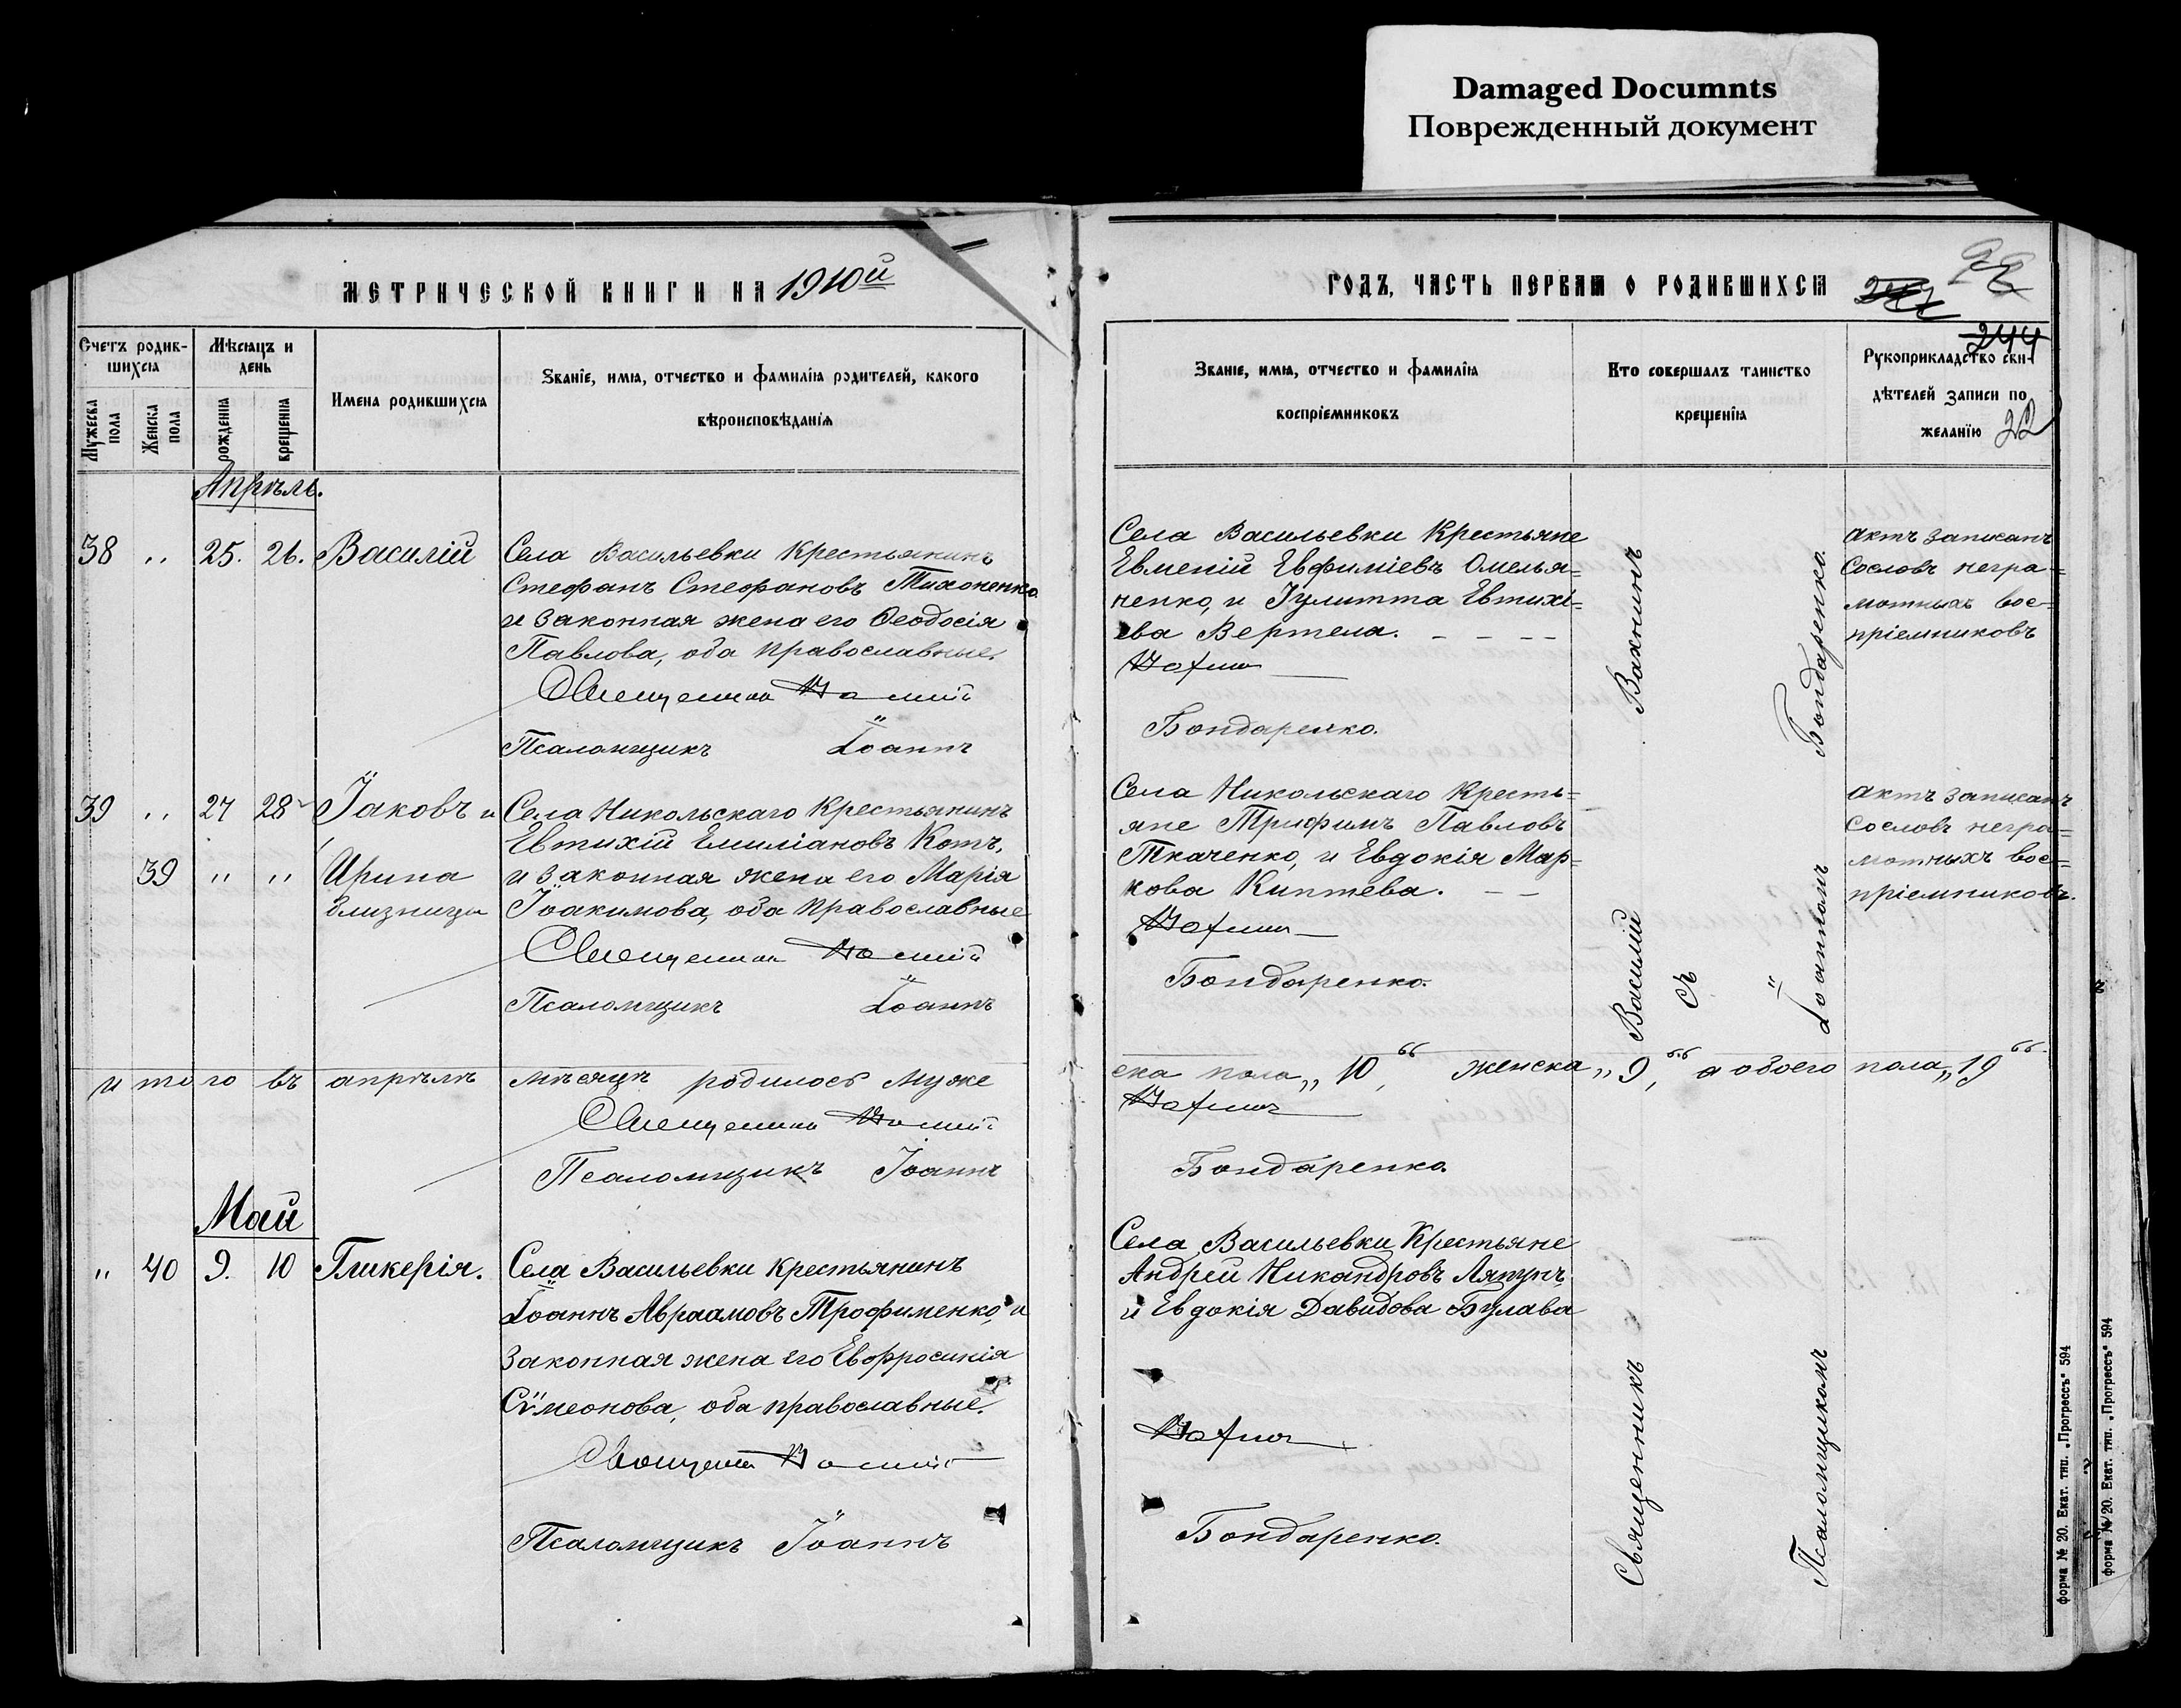 Damaged Documnts
Поврежденный документ
МЕТРИЧЕСКОЙ КНИГИ НА 1910й
ГОДЪ, ЧАСТЬ ПЕРВАЯ О РОДИВШИХСЯ
244
22
Счетъ родив-
шихся
Мужеска пола
Женска пола
Мѣсяцъ и
день
рожденія
крещенія
Имена родившихся
Званіе, имя, отчество и фамилія родителей, какого
вѣроисповѣданія
Званіе, имя, отчество и фамилія
воспріемниковъ
Кто совершалъ таинство
крещенія
Рукоприкладство сви-
дѣтелей записи по
желанію
Апрѣль.
38 „ 25. 26. Василій
Села Васильевки Крестьянинъ
Стефанъ Стефановъ Тихоненко
и законная жена его Ѳеодосія
Павлова, оба православные.
Священникъ Василій
Псаломщикъ Іоаннъ
Села Васильевки Крестьяне
Евменій Евфиміевъ Омелья=
ненко, и Іулитта Евтихі=
ева Вертела.
Вахнинъ
Бондаренко.
актъ записанъ
со словъ негра=
мотныхъ вос=
пріемниковъ
39 „ 27 28 Іаковъ и
39 „ „ Ирина
близнецы
Села Никольскаго Крестьянинъ
Евтихій Емиліановъ Котъ,
и законная жена его Марія
Іоакимова, оба православные
Священникъ Василій
Псаломщикъ Іоаннъ
Села Никольскаго Кресть=
яне Трифимъ Павловъ
Ткаченко, и Евдокія Мар=
кова Киптева.
Вахнинъ
Бондаренко.
актъ записанъ
со словъ негра=
мотныхъ вос=
пріемниковъ.
итого въ апрѣлѣ мѣсяцѣ родилось муже
ска пола „10“, женска „9“, а обоего пола „19“.
Священникъ Василій
Вахнинъ
Псаломщикъ Іоаннъ
Бондаренко.
Май
„ 40 9. 10 Гликерія.
Села Васильевки Крестьянинъ
Іоаннъ Авраамовъ Трофименко, и
законная жена его Евфросинія
Сѵмеонова, оба православные.
Священникъ Василій
Псаломщикъ Іоаннъ
Села Васильевки Крестьяне
Андрей Никандровъ Ляпунъ
и Евдокія Давидова Булава
Вахнинъ
Бондаренко.
Священникъ Василій Вахнинъ
съ
Псаломщикомъ Іоанномъ Бондаренко.
форма № 20. Екат. тип. „Прогрессъ“ 594
форма № 20. Екат. тип. „Прогрессъ“ 594